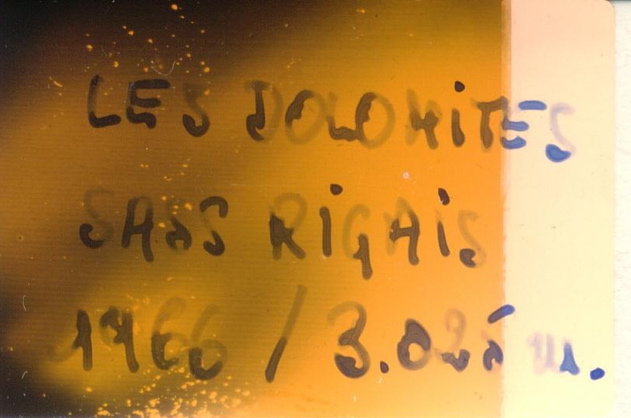 LES DOLOMiTES
SASS RiGAiS
1966 / 3.025 m.